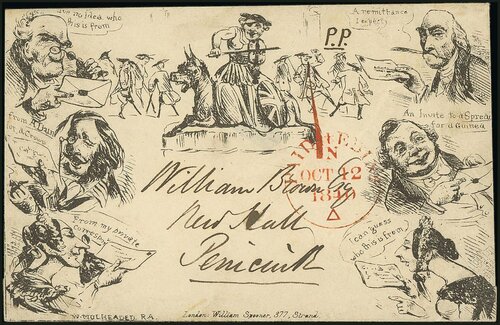 no idea who
this is from
A remittance
I expect
P.P.
from a
for a Crown
An Invite to a Spread
for a Guinea
PAID
OCT 12
1840
William Brown Esq
New Hall
Penicuik
From my private
I can guess
who this is from
W. MOLHEADED. R.A.
London: William Spooner, 377, Strand.